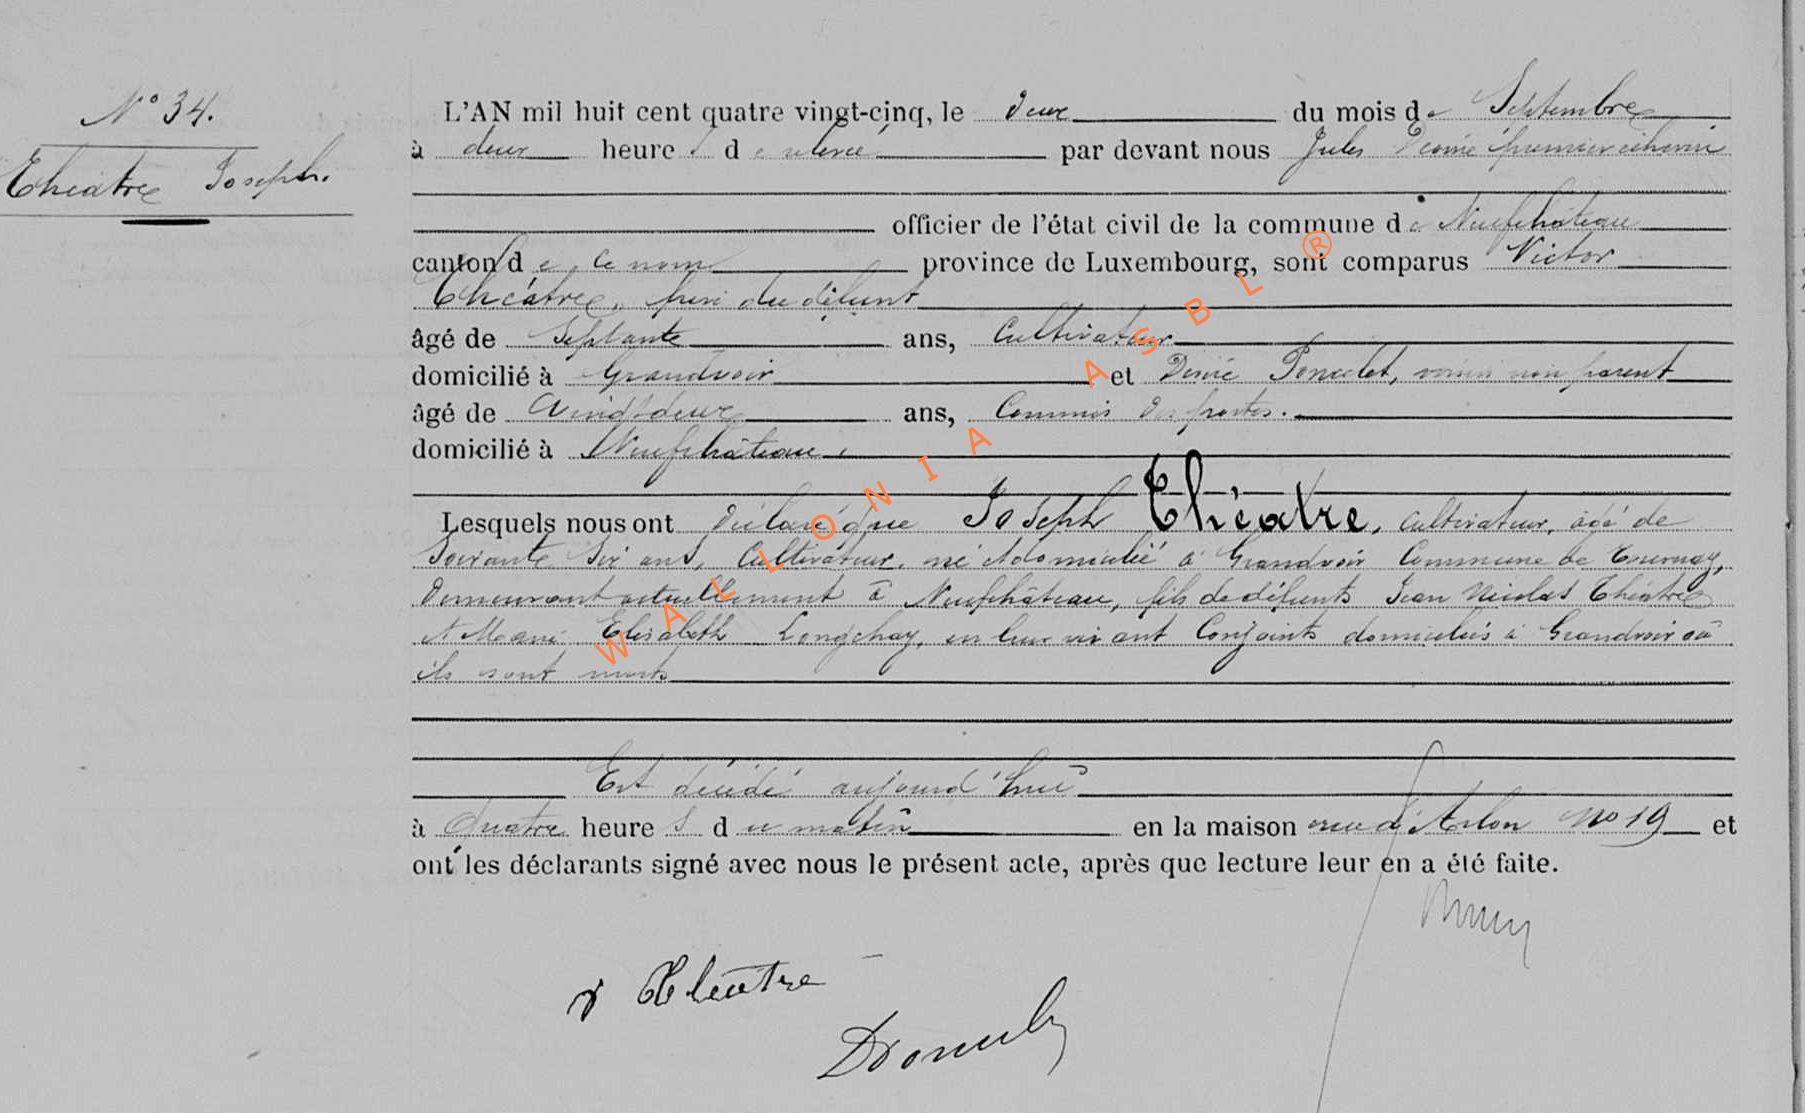 N° 34.
Théâtre Joseph.
L'AN mil huit cent quatre vingt-cinq, le deux du mois de Septembre
à deux heures de relevée par devant nous Jules premier échevin
officier de l'état civil de la commune de Neufchâteau
canton de ce nom province de Luxembourg, sont comparus Victor
Théâtre, frère du défunt
âgé de Septante ans, Cultivateur
domicilié à Grandvoir et Désiré Poncelet, voisin non parent
âgé de Vingt-deux ans, Commis des postes.
domicilié à Neufchâteau,
Lesquels nous ont déclaré que Joseph Théâtre, Cultivateur, âgé de
Soixante six ans, Cultivateur, né et domicilié à Grandvoir Commune de Tournay,
Demeurant actuellement à Neufchâteau, fils de défunts Jean Nicolas Théâtre
et Marie Elisabeth Longchay, en leur vivant Conjoints domiciliés à Grandvoir où
ils sont morts
Est décédé aujourd'hui
à Quatre heures du matin en la maison rue d'Arlon No 19 et
ont les déclarants signé avec nous le présent acte, après que lecture leur en a été faite.
V Théâtre
WALLONIA ASBL ®